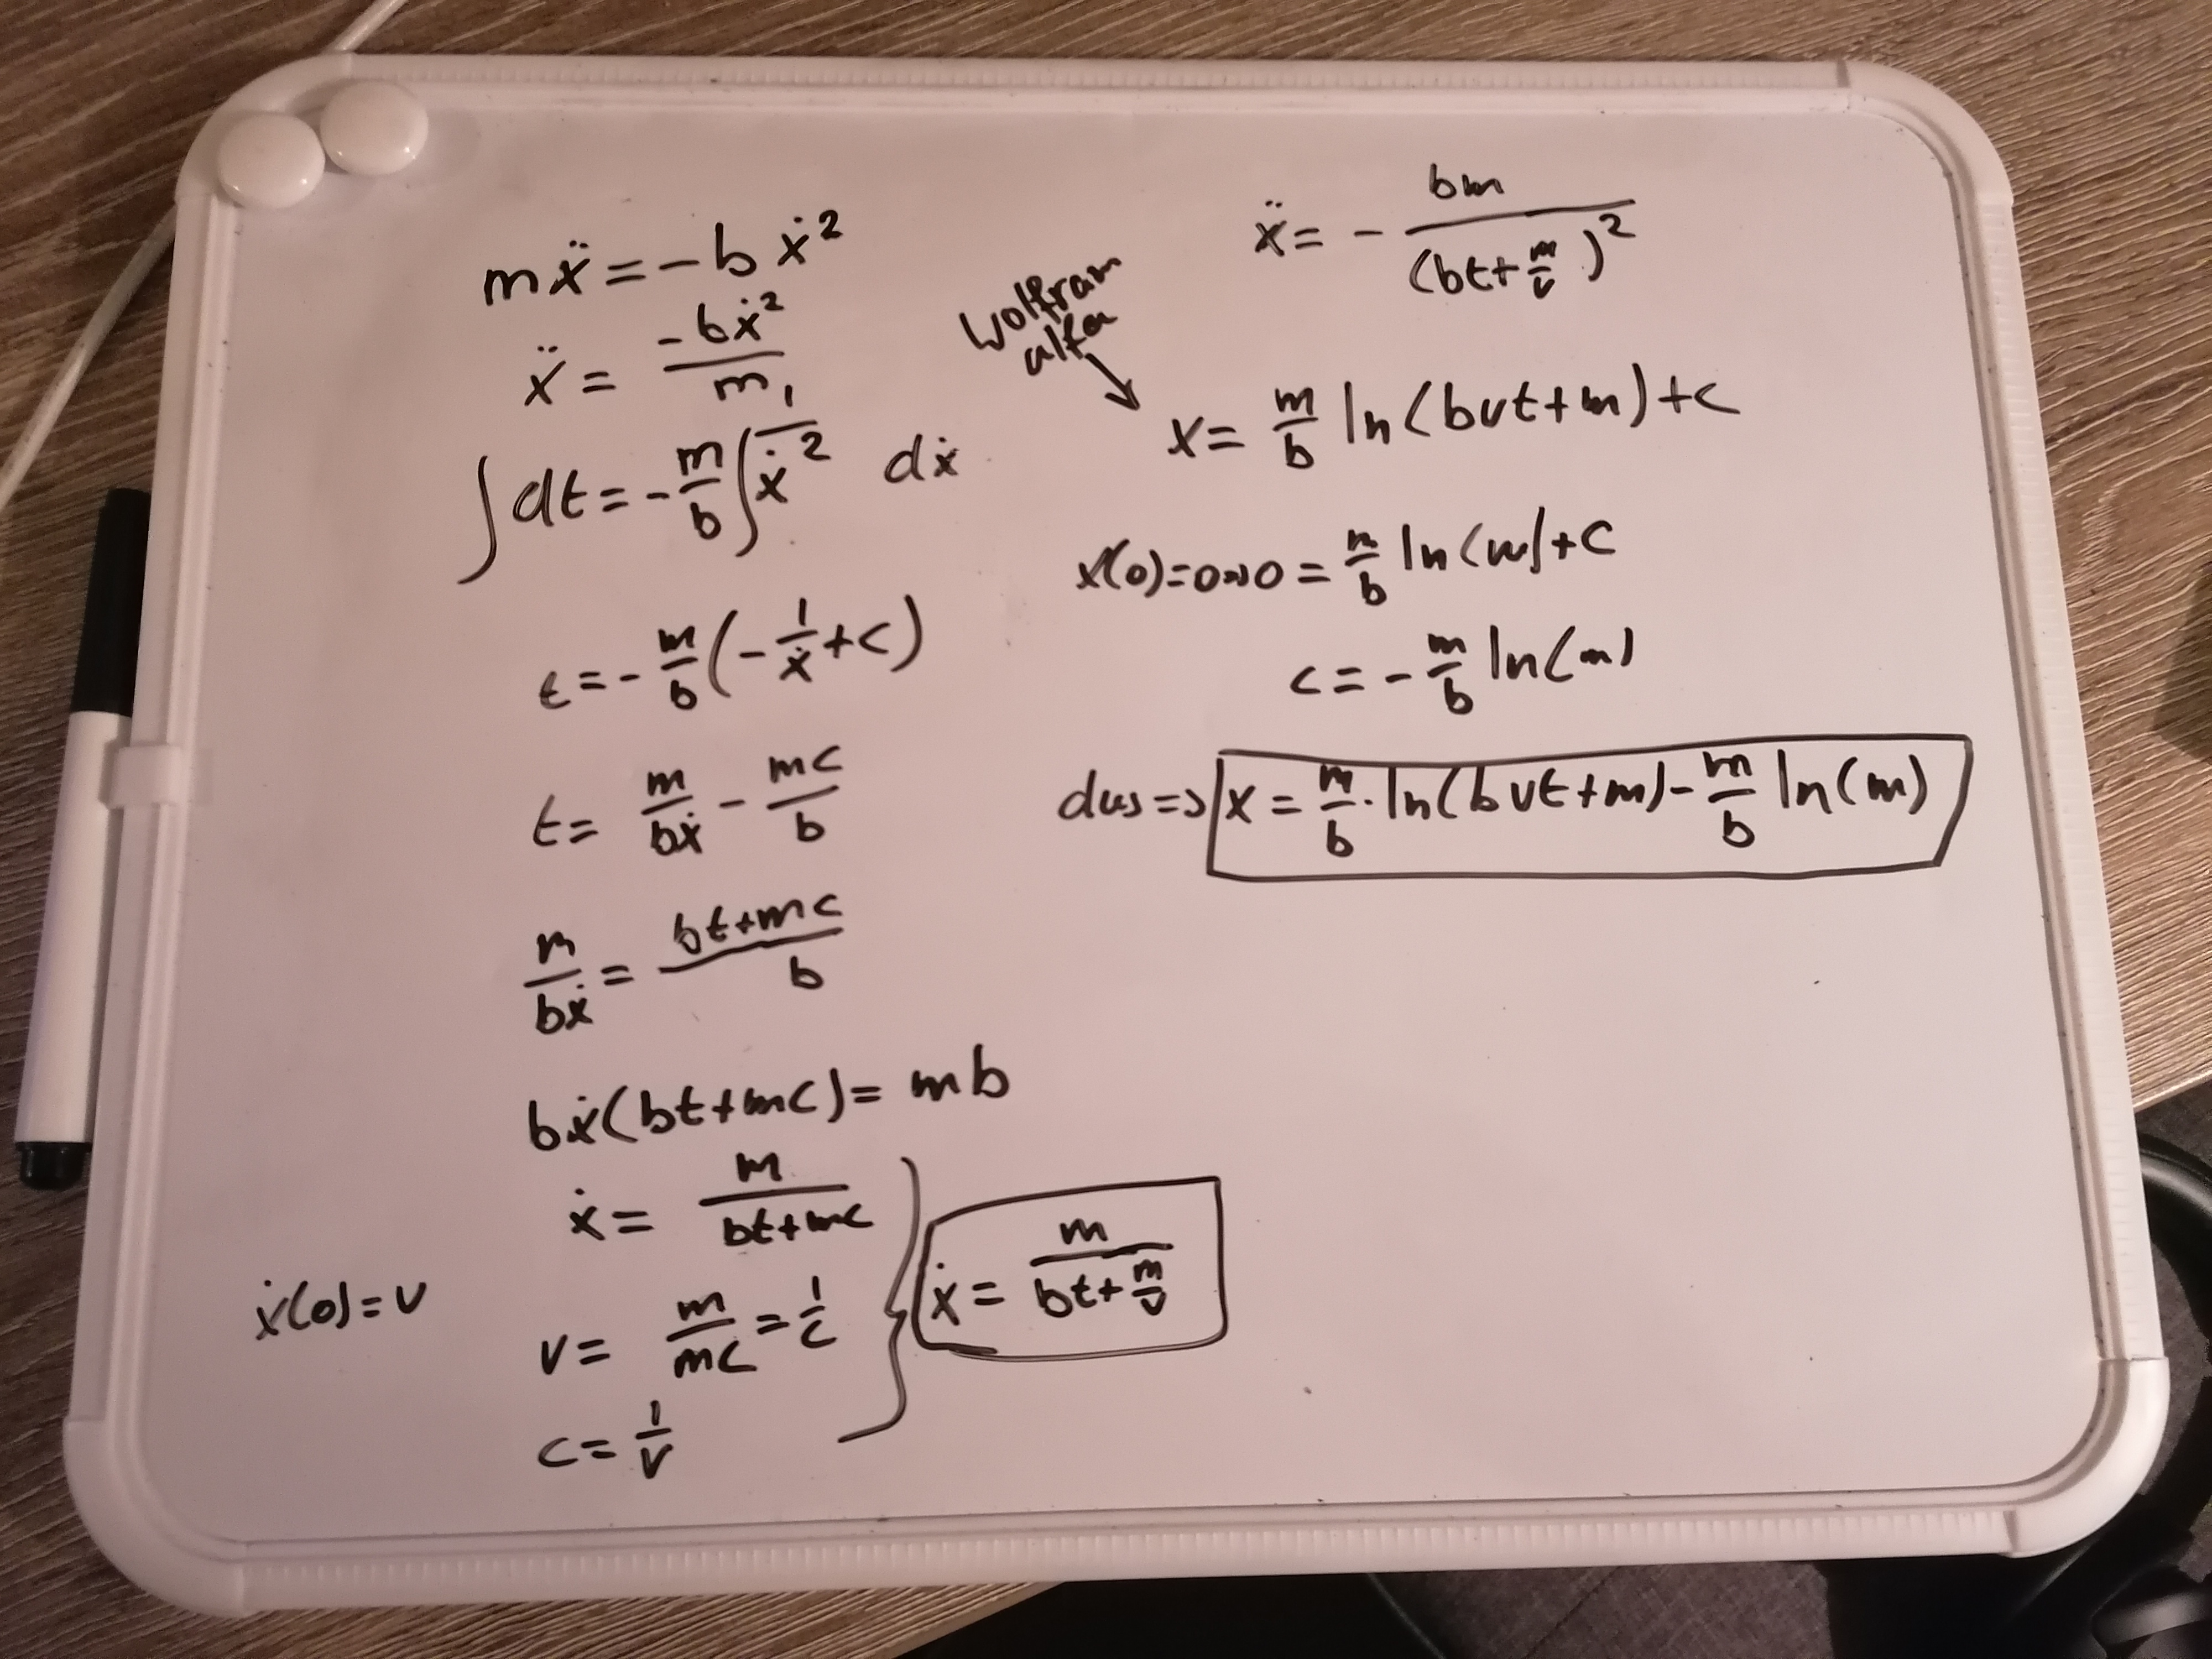 mẍ = -bẋ²
ẍ = -bẋ²/m
∫dt = -m/b ∫ 1/ẋ² dẋ
t = -m/b (-1/ẋ + c)
t = m/bẋ - mc/b
m/bẋ = bt+mc/b
bẋ(bt+mc) = mb
ẋ = m/bt+mc
ẋ(0)=v
v = m/mc = 1/c
c = 1/v
ẋ = m/bt+m/v
ẍ = - bm/(bt+m/v)²
Wolfram
alfa
↓
x = m/b ln(bvt+m)+c
x(0)=0⇒0 = m/b ln(m)+c
c = -m/b ln(m)
dus => x = m/b · ln(bvt+m) - m/b ln(m)